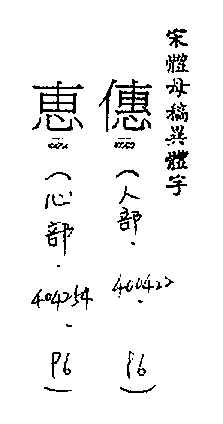 宋體母稿異體字
僡（人部．400422．P6）
恵（心部．404254．P6）